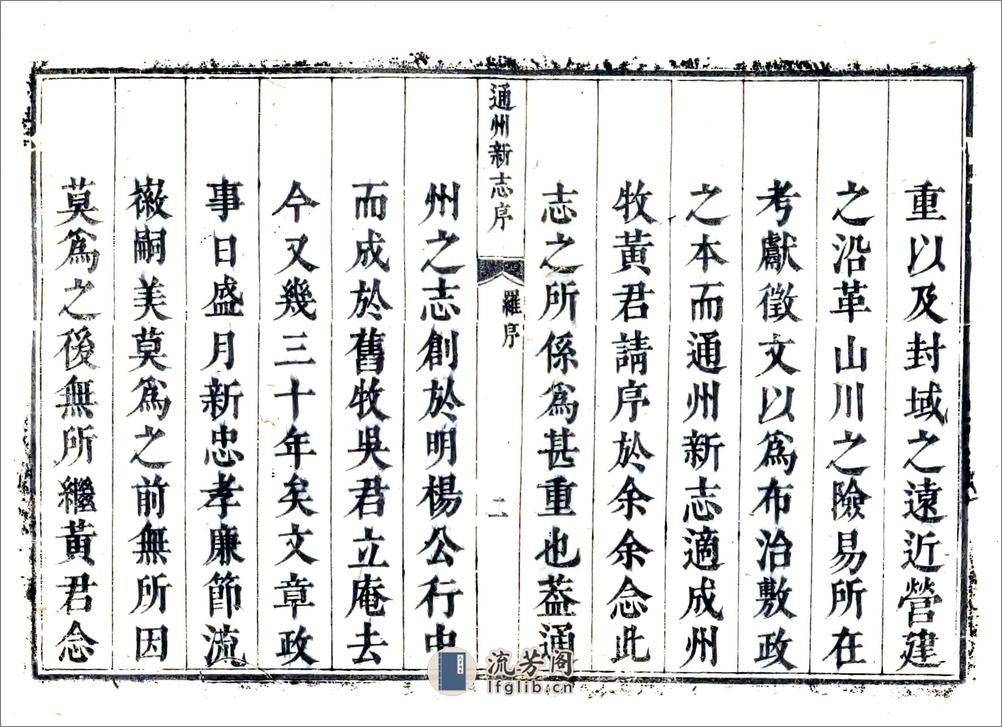 重以及封域之遠近營建
之沿革山川之險易所在
考獻徵文以爲布治敷政
之本而通州新志適成州
牧黃君請序於余余念此
志之所係爲甚重也蓋通
通州新志序 羅序 二
州之志創於明楊公行中
而成於舊牧吳君立庵去
今又幾三十年矣文章政
事日盛月新忠孝廉節流
徽嗣美莫爲之前無所因
莫爲之後無所繼黃君念
流芳阁
lfglib.cn